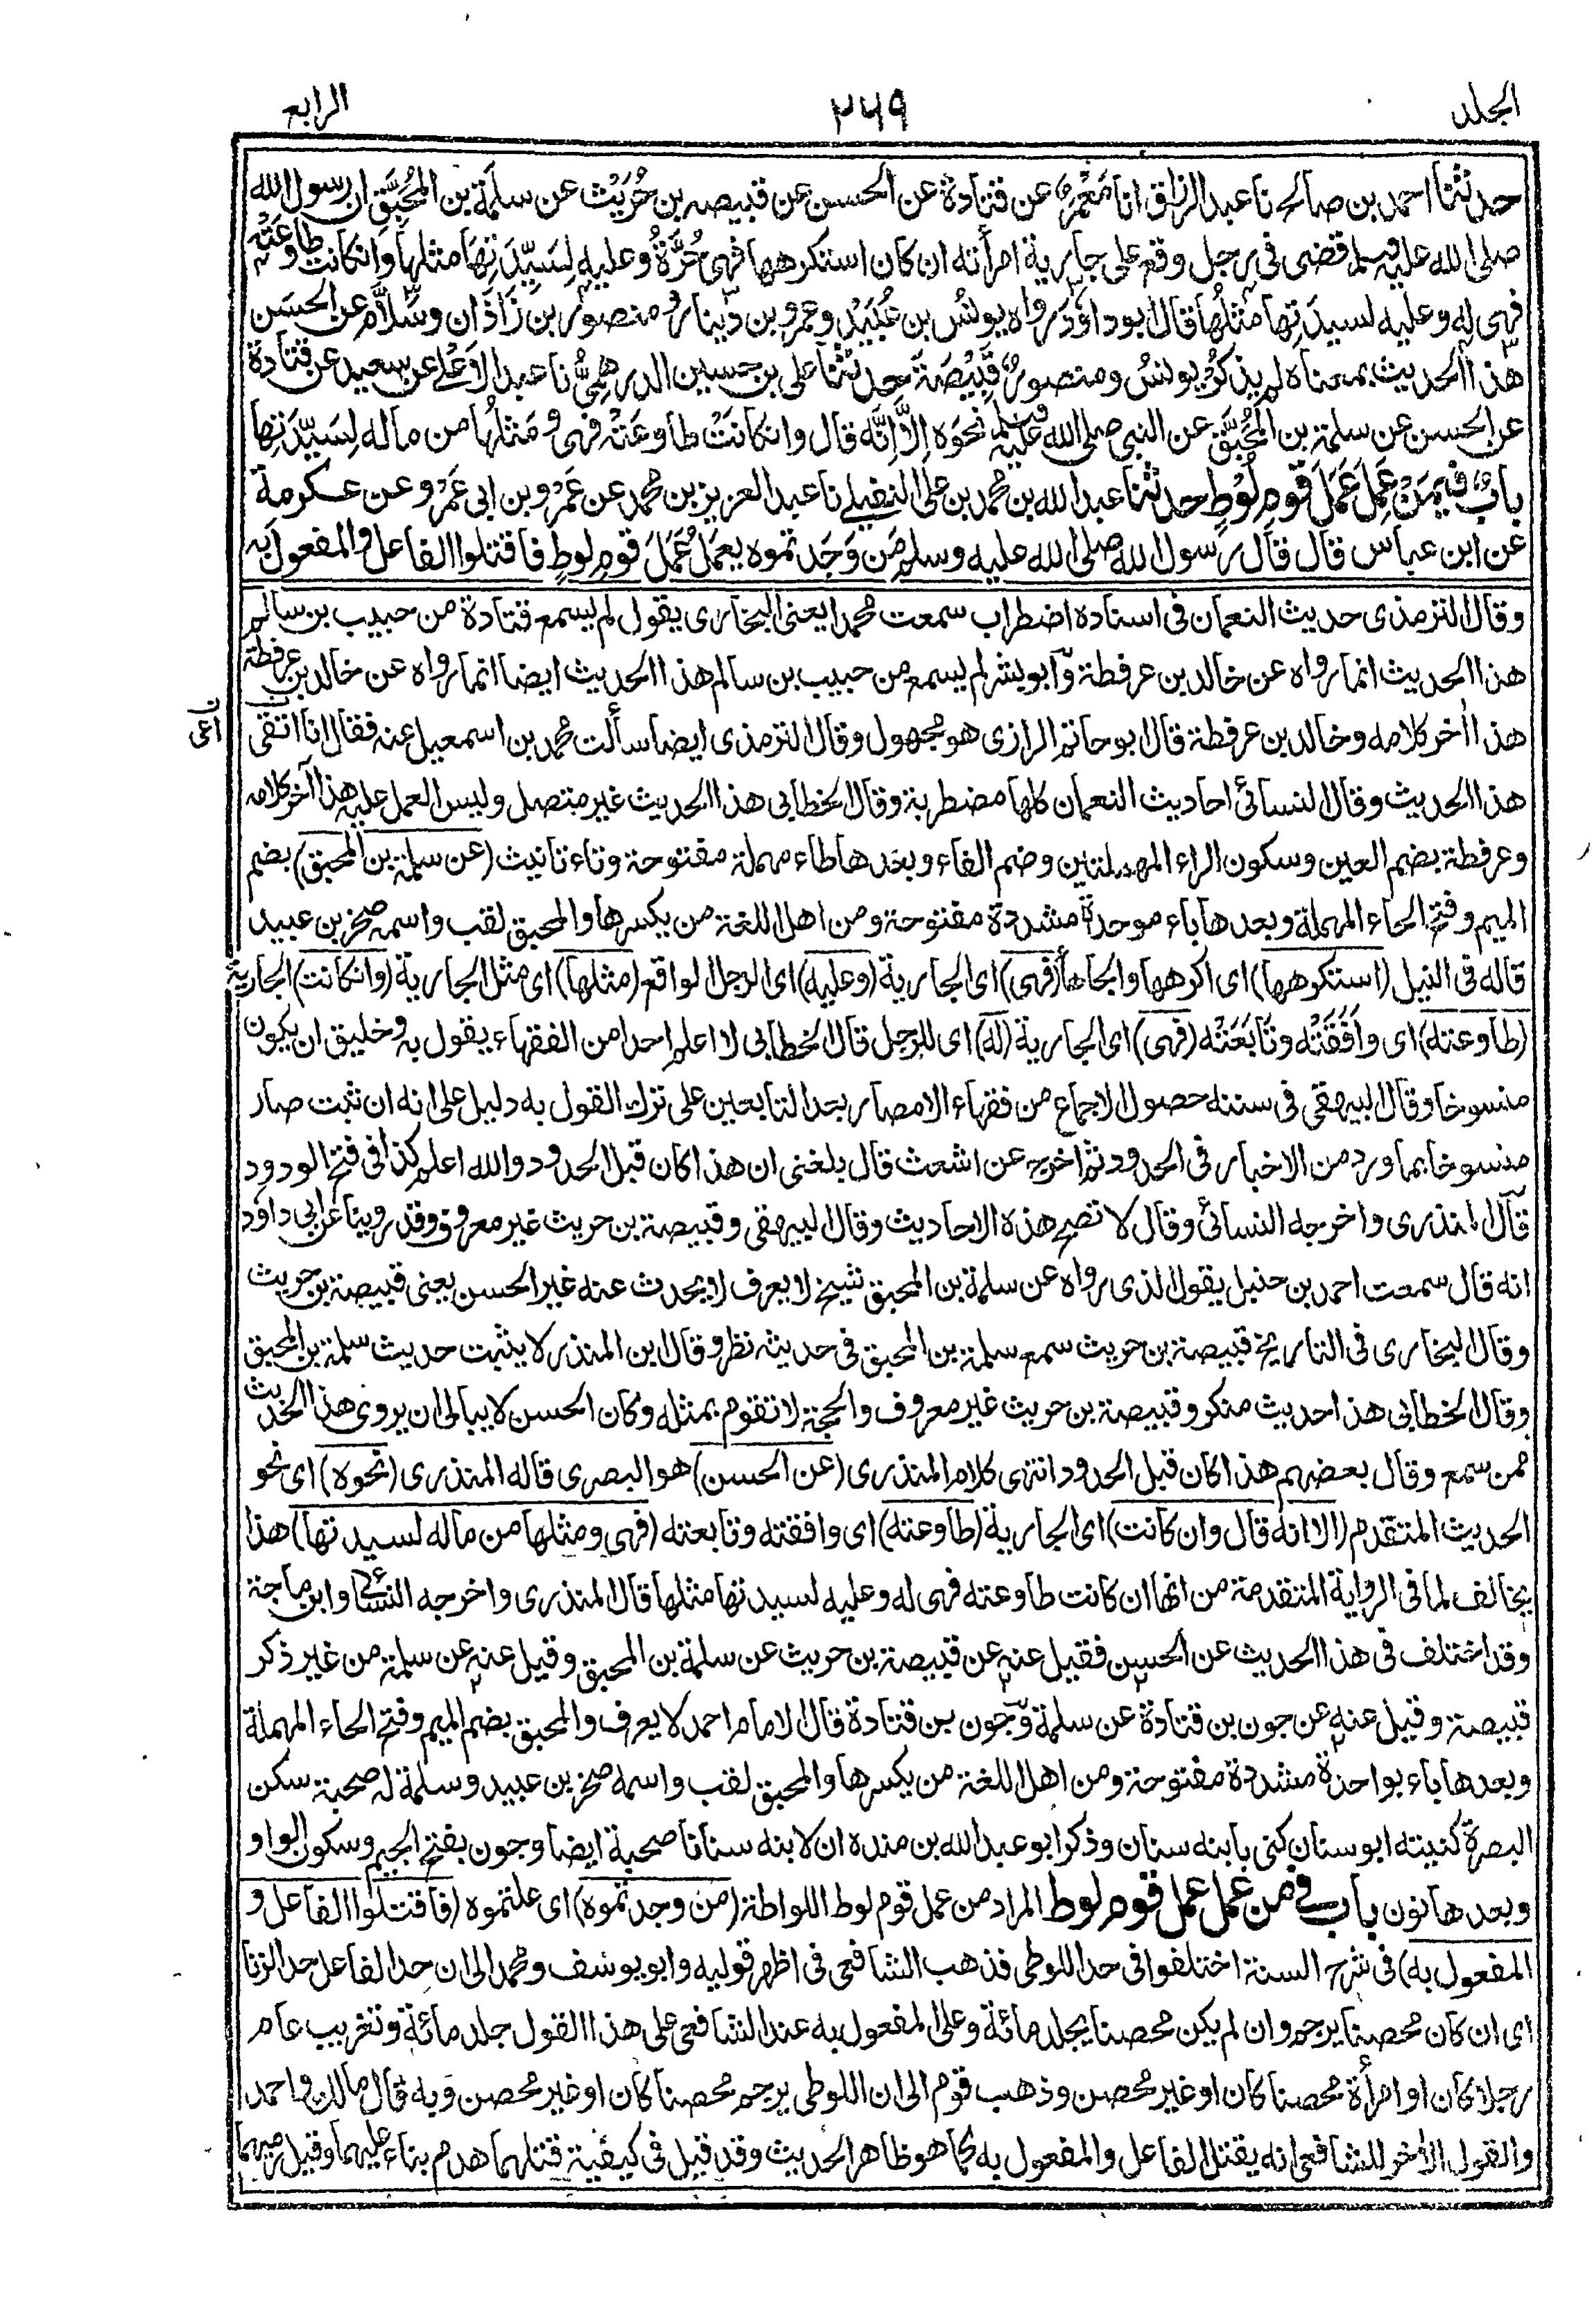 الجلد ٢٦٩ الرابع
حدثنا احمد بن صالح نا عبد الرزاق انا مَعْمَرٌ عن قتادة عن الحسن عن قبيصه بن حُرَيْث عن سلمة بن المُحَبَّقِ ان رسول الله
صلى الله عليه وسلم قضى فى رجل وقع على جارية امرأته ان كان استكرهها فهى حُرَّةٌ وعليه لِسَيِّدَتِهَا مثلها وانكانت طاوعَتْه
فهى له وعليه لسيدَتِها مثلُها قال ابوداؤد رواه يونُس بن عُبَيْدٍ وعمرو بن دينار ومنصور بن زَاذَان وسَلَّام عن الحسَن
هذا الحديث بمعناه لم يذكرْ يونسُ ومنصورٌ قَبِيْصَةَ حدثنا على بن حسين الدرهمِىُّ نا عبد الاَعْلٰى عن سعيد عن قتادة
عن الحسن عن سلمة بن المُحَبَّق عن النبى صلى الله عليه وسلم نحوَه اِلَّا اِنَّه قال وانكانَتْ طاوعَتْه فهى ومَثلُها من ماله لِسَيِّدَتِها
بابٌ فِيْمَنْ عَمِلَ عَمَلَ قَوْمِ لُوْطٍ حدثنا عبد الله بن محمد بن على النفيلى نا عبد العزيز بن محمد عن عَمْرو بن ابى عَمْرو عن عكرمة
عن ابن عباس قال قال رسول الله صلى الله عليه وسلم مَن وَجَدتموه يعمَلُ عَمَلَ قوم لوطٍ فاقتلوا الفاعل والمفعول به
وقال الترمذى حديث النعمان فى اسناده اضطراب سمعت محمدا يعنى البخارى يقول لم يسمع قتادة من حبيب بن سالم
هذا الحديث انما رواه عن خالد بن عرفطة وابوبشر لم يسمع من حبيب بن سالم هذا الحديث ايضا انما رواه عن خالد بن عرفطة
هذا اٰخر كلامه وخالد بن عرفطة قال ابو حاتم الرازى هو مجهول وقال الترمذى ايضا سألت محمد بن اسمعيل عنه فقال انا اتقى
هذا الحديث وقال النسائى احاديث النعمان كلها مضطربة وقال الخطابى هذا الحديث غير متصل وليس العمل عليه هذا آخر كلامه
وعرفطة بضم العين وسكون الراء المهملتين وضم الفاء وبعدها طاء مهملة مفتوحة وتاء تانيث (عن سلمة بن المحبق) بضم
الميم وفتح الحاء المهملة وبعدها باء موحدة مشددة مفتوحة ومن اهل اللغة من يكسرها والمحبق لقب واسمه صخر بن عبيد
قاله فى النيل (استكرهها) اى اكرهها والجاها (فهى) اى الجارية (وعليه) اى الرجل الواقع (مثلها) اى مثل الجارية (وانكانت) الجارية
(طاوعته) اى وافَقَتْه وتَابَعَتْه (فهى) اى الجارية (له) اى للرجل قال الخطابى لا اعلم احدا من الفقهاء يقول به وخليق ان يكون
منسوخا وقال البيهقى فى سننه حصول الاجماع من فقهاء الامصار بعد التابعين على ترك القول به دليل على انه ان ثبت صار
منسوخا بما ورد من الاخبار فى الحدود ثم اخرج عن اشعث قال بلغنى ان هذا كان قبل الحدود والله اعلم كذا فى فتح الودود
قال المنذرى واخرجه النسائى وقال لا تصح هذه الاحاديث وقال البيهقى وقبيصة بن حريث غير معروف وقد روينا عن ابى داود
انه قال سمعت احمد بن حنبل يقول الذى رواه عن سلمة بن المحبق شيخ لا يعرف لا يحدث عنه غير الحسن يعنى قبيصة بن حريث
وقال البخارى فى التاريخ قبيصة بن حريث سمع سلمة بن المحبق فى حديثه نظر وقال ابن المنذر لا يثبت حديث سلمة بن المحبق
وقال الخطابى هذا حديث منكر وقبيصة بن حريث غير معروف والحجة لا تقوم بمثله وكان الحسن لا يبالى ان يروى هذا الحديث
ممن سمع وقال بعضهم هذا كان قبل الحدود انتهى كلام المنذرى (عن الحسن) هو البصرى قاله المنذرى (نحوه) اى نحو
الحديث المتقدم (الا انه قال وان كانت) اى الجارية (طاوعته) اى وافقته وتابعته (فهى ومثلها من ماله لسيدتها) هذا
يخالف لما فى الرواية المتقدمة من انها ان كانت طاوعته فهى له وعليه لسيدتها مثلها قال المنذرى واخرجه النسائى وابن ماجة
وقد اختلف فى هذا الحديث عن الحسن فقيل عنه عن قبيصة بن حريث عن سلمة بن المحبق وقيل عنه عن سلمة من غير ذكر
قبيصة وقيل عنه عن جون بن قتادة عن سلمة وجون بن قتادة قال الامام احمد لا يعرف والمحبق بضم الميم وفتح الحاء المهملة
وبعدها باء بواحدة مشددة مفتوحة ومن اهل اللغة من يكسرها والمحبق لقب واسمه صخر بن عبيد وسلمة له صحبة سكن
البصرة كنيته ابو سنان كنى بابنه سنان وذكر ابو عبد الله بن منده ان لابنه سنانا صحبة ايضا وجون بفتح الجيم وسكون الواو
وبعدها نون باب فى من عمل عمل قوم لوط المراد من عمل قوم لوط اللواطة (من وجدتموه) اى علمتموه (فاقتلوا الفاعل و
المفعول به) فى شرح السنة اختلفوا فى حد اللوطى فذهب الشافعى فى اظهر قوليه وابو يوسف ومحمد الى ان حد الفاعل حد الزنا
اى ان كان محصنا يرجم وان لم يكن محصنا يجلد مائة وعلى المفعول به عند الشافعى على هذا القول جلد مائة وتغريب عام
رجلا كان او امرأة محصنا كان او غير محصن وذهب قوم الى ان اللوطى يرجم محصنا كان او غير محصن وبه قال مالك واحمد
والقول الاٰخر للشافعى انه يقتل الفاعل والمفعول به كما هو ظاهر الحديث وقد قيل فى كيفية قتلهما هدم بناء عليهما وقيل رميهما